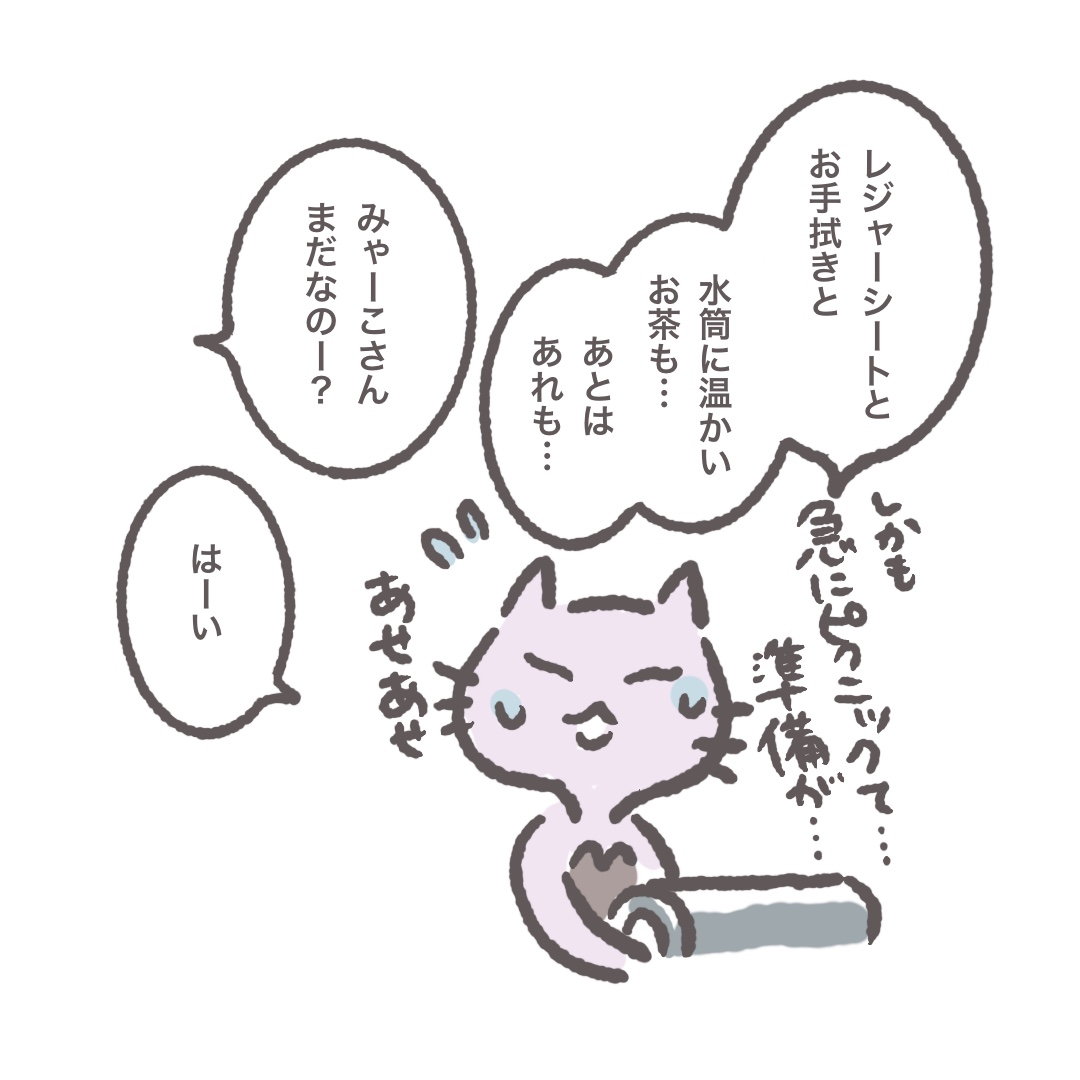 レジャーシートと
お手拭きと
水筒に温かい
お茶も…
あとは
あれも…
しかも
急にピクニックて…
準備が…
みゃーこさん
まだなのー？
あせあせ
はーい